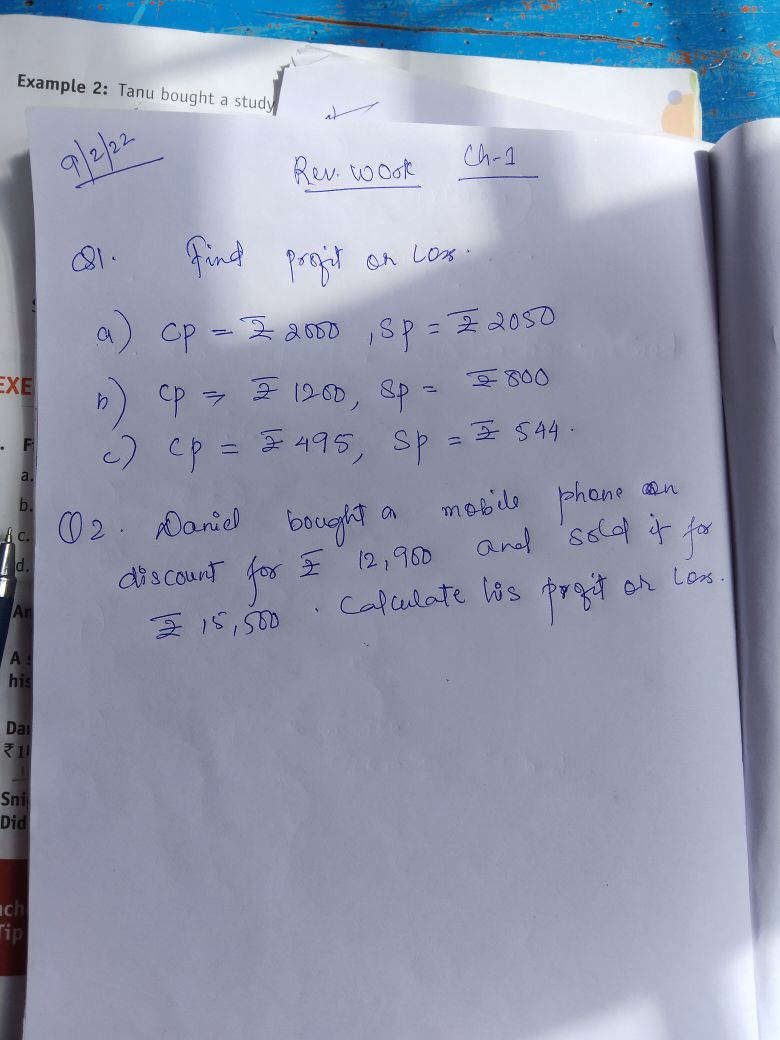 Example 2: Tanu bought a study
9/2/22
Rev. Work Ch-1
Q1. Find profit or Loss.
a) CP = ₹ 2000, SP = ₹ 2050
b) CP = ₹ 1200, SP = ₹ 800
c) CP = ₹ 495, SP = ₹ 544.
Q2. Daniel bought a mobile phone on
discount for ₹ 12,900 and sold it for
₹ 15,500. Calculate his profit or Loss.
EXE
F
a.
b.
c.
d.
An
A
his
Dan
₹1
Sni
Did
ach
Tip